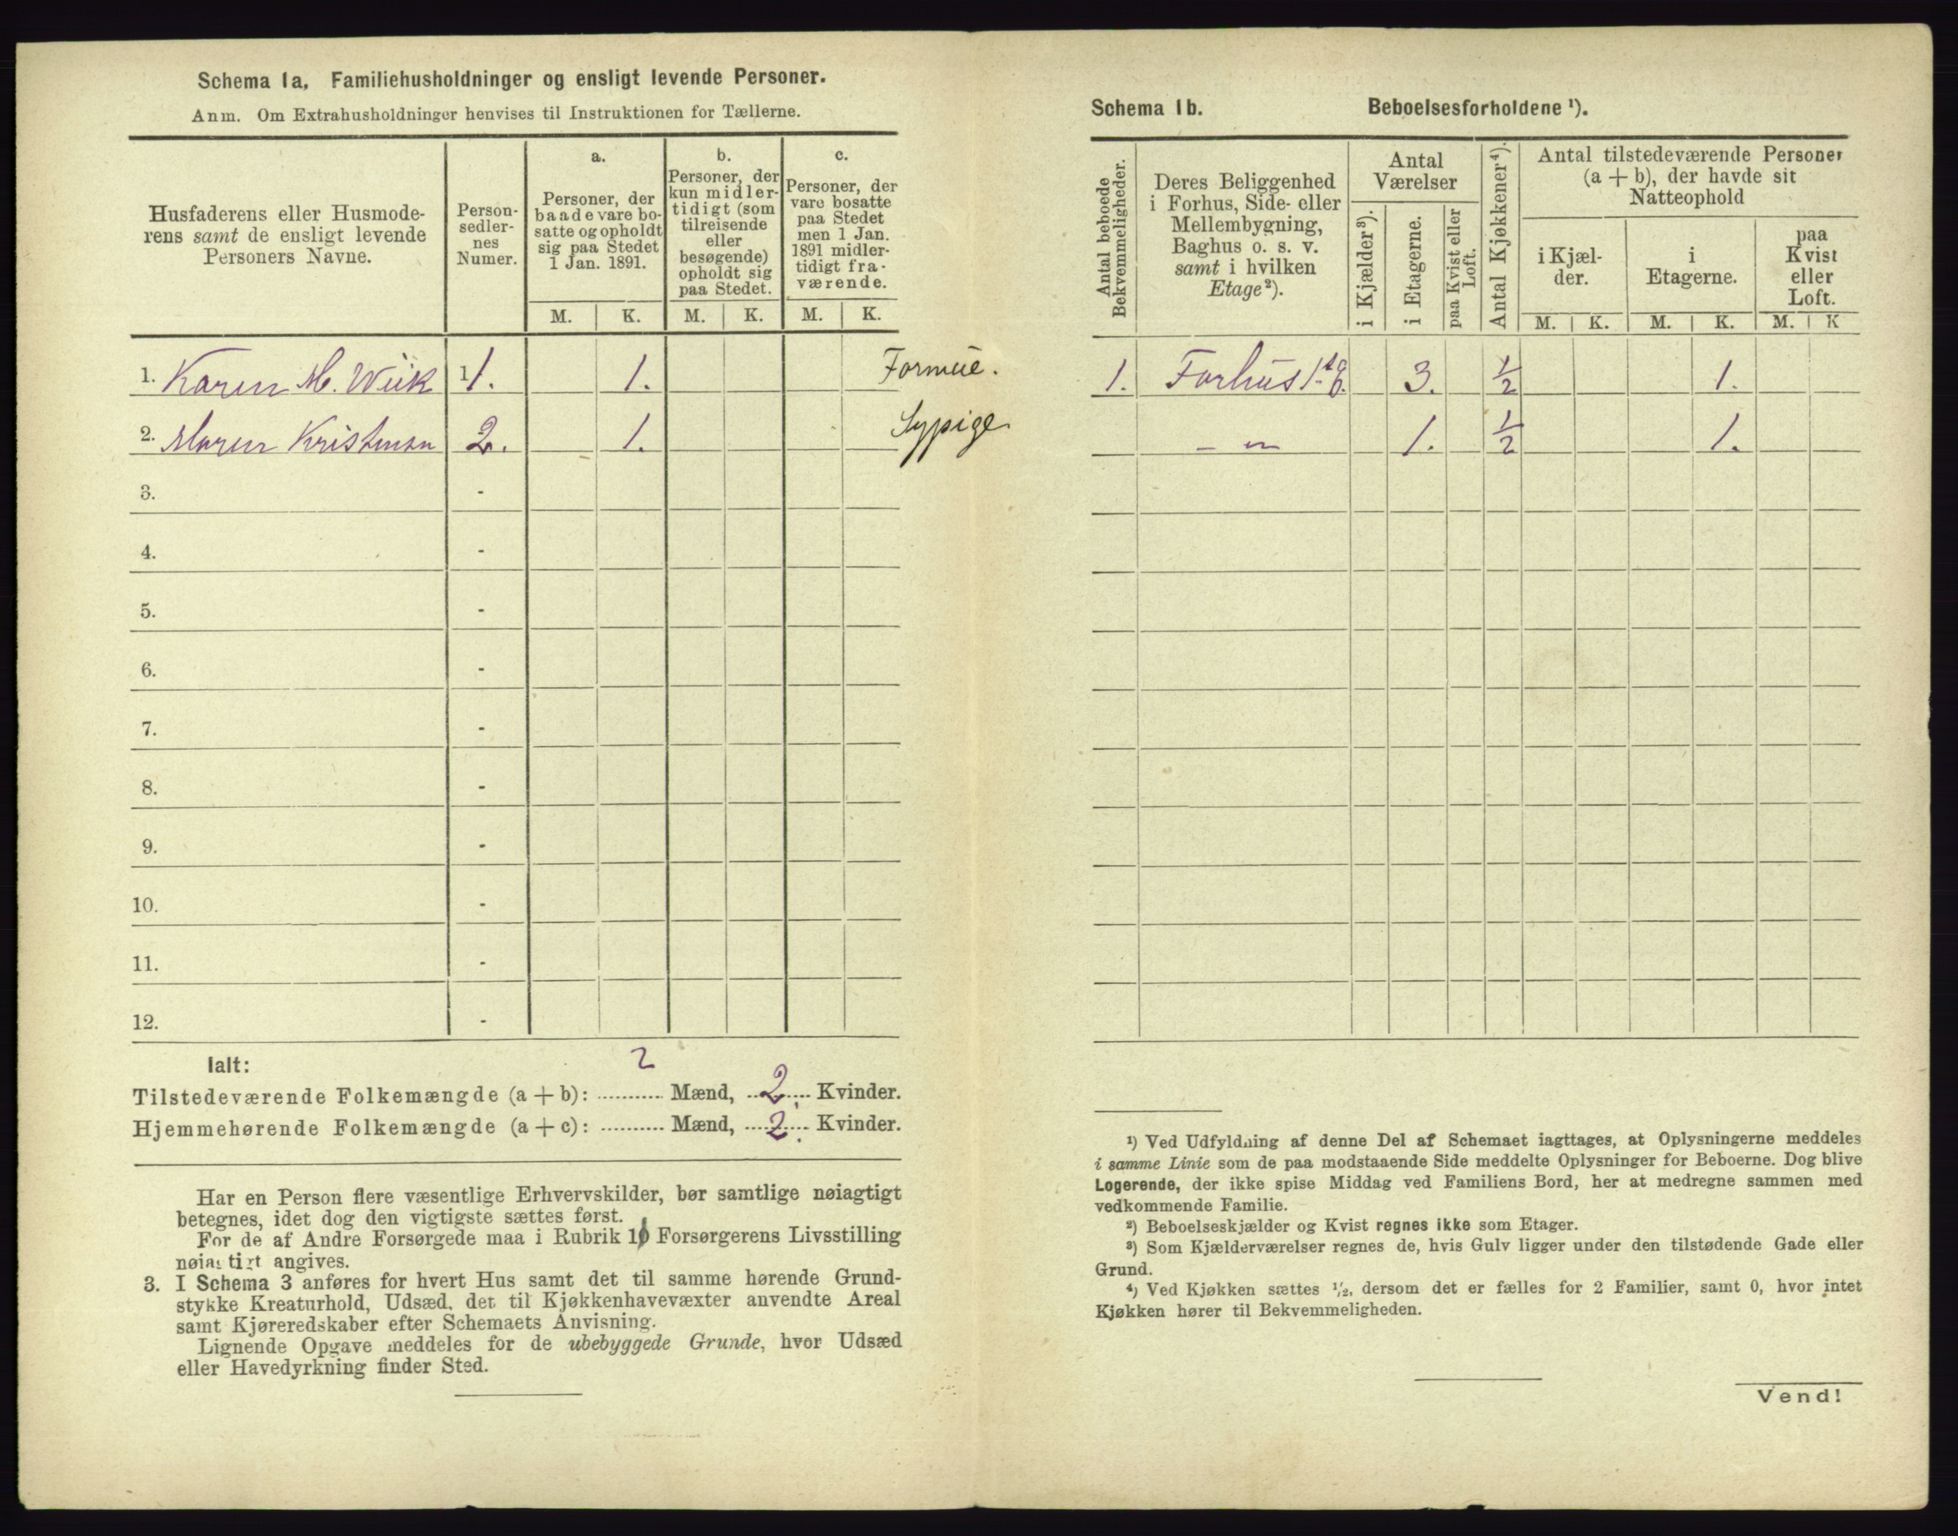 Schema 1a. Familiehusholdninger og ensligt levende Personer.
Anm. Om Extrahusholdninger henvises til Instruktionen for Tællerne.
Husfaderens eller Husmode-
rens samt de ensligt levende
Personers Navne.
Person-
sedler-
nes
Numer.
a.
Personer, der
baade vare bo-
satte og opholdt
sig paa Stedet
1 Jan. 1891.
b.
Personer, der
kun midler-
tidigt (som
tilreisende
eller
besøgende)
opholdt sig
paa Stedet.
c.
Personer, der
vare bosatte
paa Stedet
men 1 Jan.
1891 midler-
tidigt fra-
værende.
M. K. M. K. M. K.
1. Karen M. Wiik 1 1. 1. Formue.
2. Maren Kristensen 2. 1. Sypige
3. -
4. -
5. -
6. -
7. -
8. -
9. -
10. -
11. -
12. -
2
Ialt:
Tilstedeværende Folkemængde (a + b): Mænd, 2. Kvinder.
Hjemmehørende Folkemængde (a + c): Mænd, 2. Kvinder.
Har en Person flere væsentlige Erhvervskilder, bør samtlige nøiagtigt
betegnes, idet dog den vigtigste sættes først.
For de af Andre Forsørgede maa i Rubrik 10 Forsørgerens Livsstilling
nøia tigt angives.
3. I Schema 3 anføres for hvert Hus samt det til samme hørende Grund-
stykke Kreaturhold, Udsæd, det til Kjøkkenhavevæxter anvendte Areal
samt Kjøreredskaber efter Schemaets Anvisning.
Lignende Opgave meddeles for de ubebyggede Grunde, hvor Udsæd
eller Havedyrkning finder Sted.
Schema 1b. Beboelsesforholdene ¹).
Antal beboede
Bekvemmeligheder.
Deres Beliggenhed
i Forhus, Side- eller
Mellembygning,
Baghus o. s. v.
samt i hvilken
Etage²).
Antal
Værelser
i Kjælder³).
i Etagerne.
paa Kvist eller
Loft.
Antal Kjøkkener⁴).
Antal tilstedeværende Personer
(a + b), der havde sit
Natteophold
i Kjæl-
der.
i
Etagerne.
paa
Kvist
eller
Loft.
M. K. M. K. M. K
1. Forhus 1ste E. 3. ½ 1.
- " 1. ½ 1.
¹) Ved Udfyldning af denne Del af Schemaet iagttages, at Oplysningerne meddeles
i samme Linie som de paa modstaaende Side meddelte Oplysninger for Beboerne. Dog blive
Logerende, der ikke spise Middag ved Familiens Bord, her at medregne sammen med
vedkommende Familie.
²) Beboelseskjælder og Kvist regnes ikke som Etager.
³) Som Kjælderværelser regnes de, hvis Gulv ligger under den tilstødende Gade eller
Grund.
⁴) Ved Kjøkken sættes ½, dersom det er fælles for 2 Familier, samt 0, hvor intet
Kjøkken hører til Bekvemmeligheden.
Vend!